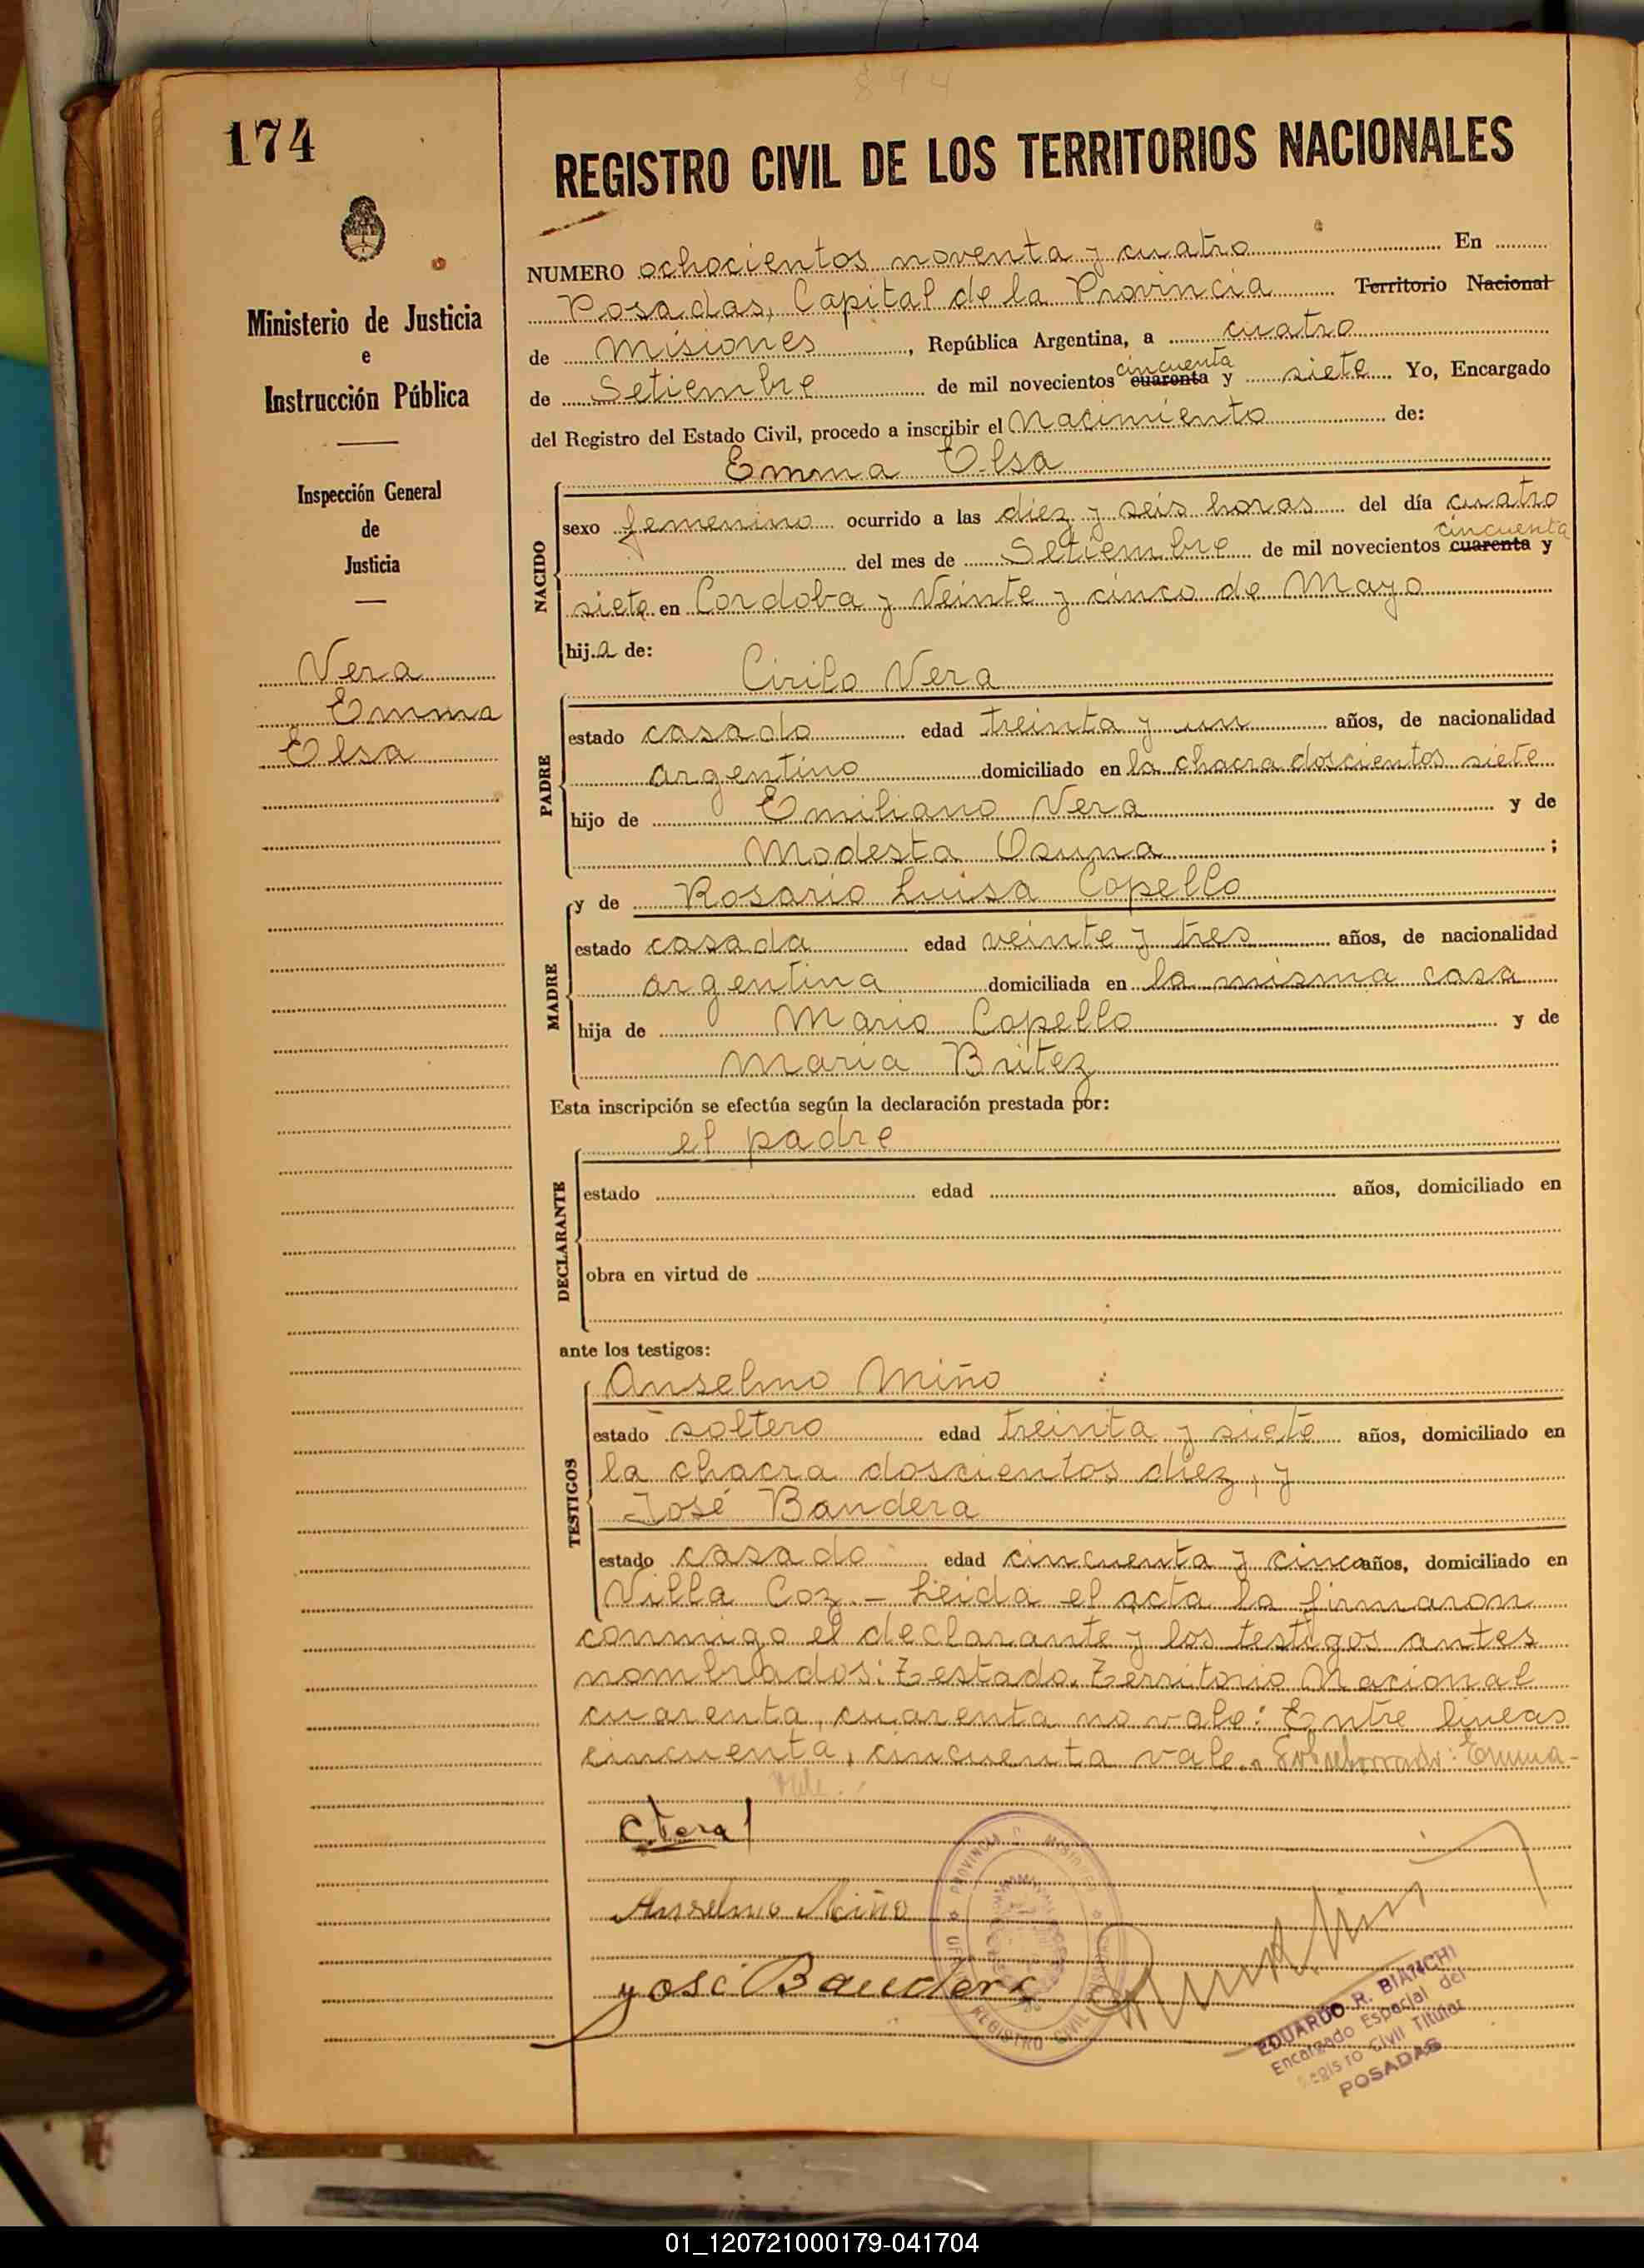 894
174
REGISTRO CIVIL DE LOS TERRITORIOS NACIONALES
Ministerio de Justicia
e
Instrucción Pública
Inspección General
de
Justicia
Vera
Emma
Elsa
NUMERO ochocientos noventa y cuatro En
Posadas, Capital de la Provincia Territorio Nacional
de Misiones, República Argentina, a cuatro
cincuenta
de Setiembre de mil novecientos cuarenta y siete Yo, Encargado
del Registro del Estado Civil, procedo a inscribir el Nacimiento de:
Emma Elsa
NACIDO
sexo femenino ocurrido a las diez y seis horas del día cuatro
cincuenta
del mes de Setiembre de mil novecientos cuarenta y
siete en Cordoba y Veinte y cinco de Mayo
hija de:
Cirilo Vera
PADRE
estado casado edad treinta y un años, de nacionalidad
argentino domiciliado en la chacra doscientos siete
hijo de Emiliano Vera y de
Modesta Osuna;
MADRE
y de Rosario Luisa Copello
estado casada edad veinte y tres años, de nacionalidad
argentina domiciliada en la misma casa
hija de Mario Copello y de
Maria Britez
Esta inscripción se efectúa según la declaración prestada por:
el padre
DECLARANTE
estado edad años, domiciliado en
obra en virtud de
ante los testigos:
TESTIGOS
Anselmo Miño
estado soltero edad treinta y siete años, domiciliado en
la chacra doscientos diez, y
José Bandera
estado casado edad cincuenta y cinco años, domiciliado en
Villa Coz.- Leida el acta la firmaron
conmigo el declarante y los testigos antes
nombrados: Testado. Territorio Nacional
cuarenta, cuarenta no vale: Entre lineas
cincuenta, cincuenta vale. Sobreborrado: Emma-
vale.
C Vera
Anselmo Miño
José Bandera
PROVINCIA DE MISIONES
REGISTRO CIVIL
EDUARDO R. BIANCHI
Encargado Especial del
Registro Civil Titular
POSADAS
01_120721000179-041704